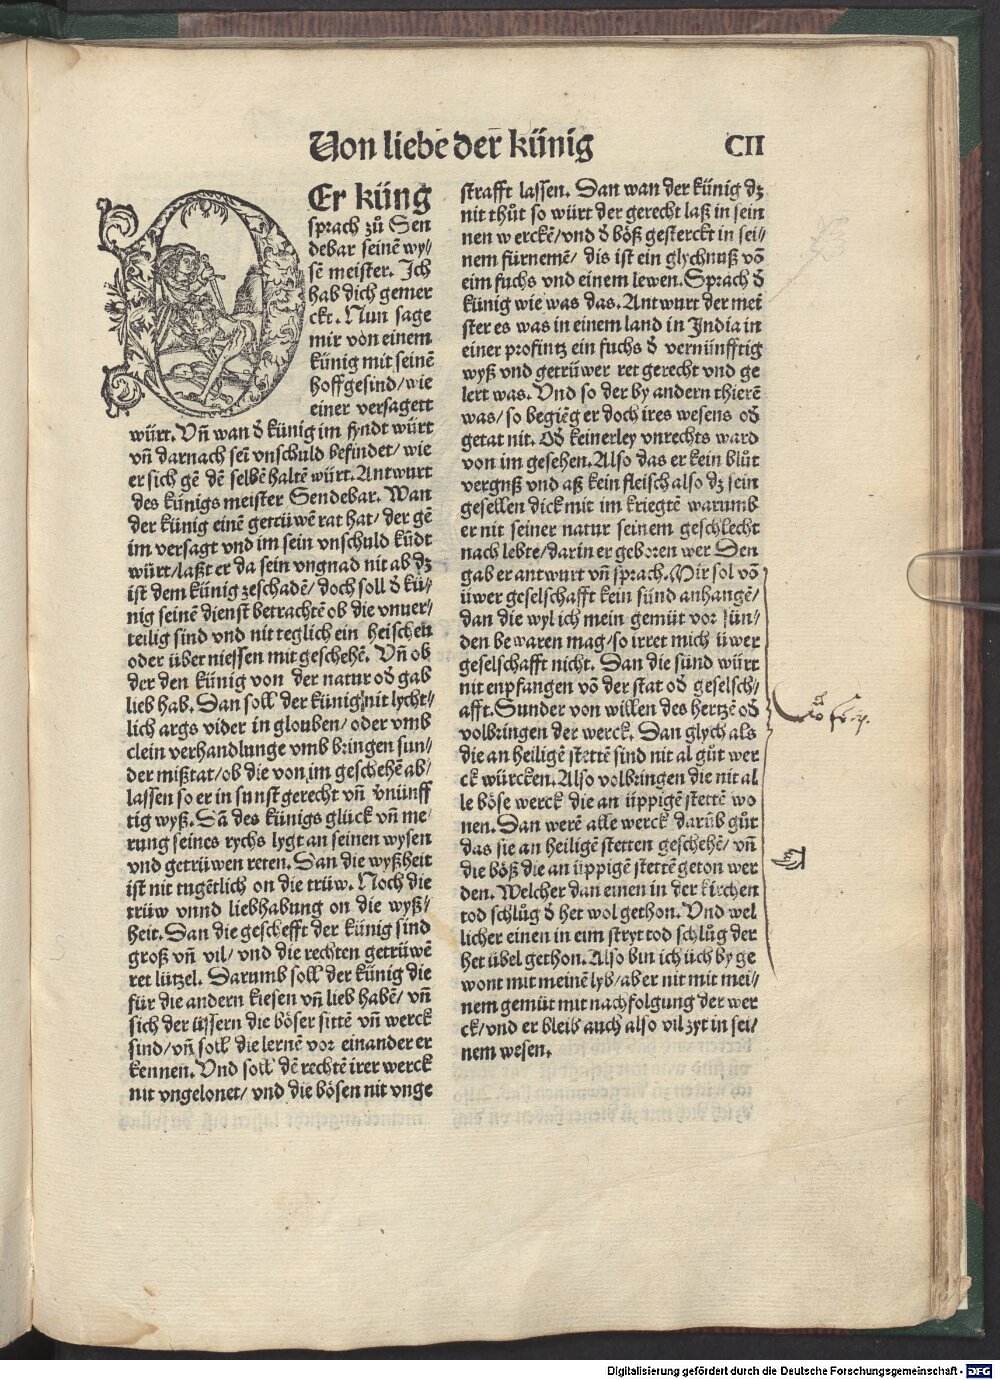 Von liebe der künig
CII
Er küng
sprach zů Sen
debar seinē wy⸗
sē meister. Ich
hab dich gemer
ckt. Nun sage
mir von einem
künig mit seinē
hoffgesind/wie
einer versagett
würt. Vn̄ wan d̄ künig im fyndt würt
vn̄ darnach sei͂ vnschuld befindet/wie
er sich gē dē selbē haltē würt. Antwurt
des künigs meister Sendebar. Wan
der künig einē getrüwē rat hat/der gē
im versagt vnd im sein vnschuld küdt
würt/laßt er da sein vngnad nit ab dz
ist dem künig zeschadē/doch soll d̄ kü⸗
nig seinē dienst betrachtē ob die vnuer⸗
teilig sind vnd nit teglich ein heischen
oder über niessen mit geschehē. Vn̄ ob
der den künig von der natur od̄ gab
lieb hab. Dan soll der künig nit lycht⸗
lich args vider in glouben/oder vmb
clein verhandlunge vmb bringen sun⸗
der mißtat/ob die von im geschehē ab⸗
lassen so er in sunst gerecht vn̄ v̄nünff
tig wyß. Dā des künigs glück vn̄ me⸗
rung seines rychs lygt an seinen wysen
vnd getrüwen reten. Dan die wyßheit
ist nit tugētlich on die trüw. Noch die
trüw vnnd liebhabung on die wyß⸗
heit. Dan die geschefft der künig sind
groß vn̄ vil/vnd die rechten getrüwē
ret lützel. Darumb soll der künig die
für die andern kiesen vn̄ lieb habē/vn̄
sich der üssern die böser sittē vn̄ werck
sind/vn̄ soll die lernē vor einander er
kennen. Vnd soll dē rechtē irer werck
nit vngelonet/vnd die bösen nit vnge
strafft lassen. Dan wan der künig dz
nit thůt so würt der gerecht laß in sein
nen werckē/vnd d̄ böß gesterckt in sei⸗
nem fürnemē/dis ist ein glychnuß vō
eim fuchs vnd einem lewen. Sprach d̄
künig wie was das. Antwurt der mei
ster es was in einem land in India in
einer profintz ein fuchs d̄ vernünfftig
wyß vnd getrüwer ret gerecht vnd ge
lert was. Vnd so der by andern thierē
was/so begieg er doch ires wesens od̄
getat nit. Od̄ keinerley vnrechts ward
von im gesehen. Also das er kein blůt
verguß vnd aß kein fleisch also dz sein
gesellen dick mit im kriegtē warumb
er nit seiner natur seinem geschlecht
nach lebte/darin er geboren wer Den
gab er antwurt vn̄ sprach. Mir sol vō
üwer geselschafft kein sünd anhangē/
dan die wyl ich mein gemüt vor sün⸗
den bewaren mag/so irret mich üwer
geselschafft nicht. Dan die sünd würt
nit enpfangen vō der stat od̄ geselsch⸗
afft. Sunder von willen des hertzē od̄
volbringen der werck. Dan glych als
die an heiligē stettē sind nit al gůt wer
ck würcken. Also volbringen die nit al
le böse werck die an üppigē stettē wo
nen. Dan werē alle werck darūb gůt
das sie an heiligē stetten geschehē/vn̄
die böß die an üppigē stettē geton wer
den. Welcher dan einen in der kirchen
tod schlůg d̄ het wol gethon. Vnd wel
licher einen in eim stryt tod schlůg der
het übel gethon. Also bin ich üch by ge
wont mit meinē lyb/aber nit mit mei⸗
nem gemüt mit nachfolgung der wer
ck/vnd er bleib auch also vil zyt in sei⸗
nem wesen.
Digitalisierung gefördert durch die Deutsche Forschungsgemeinschaft - DFG